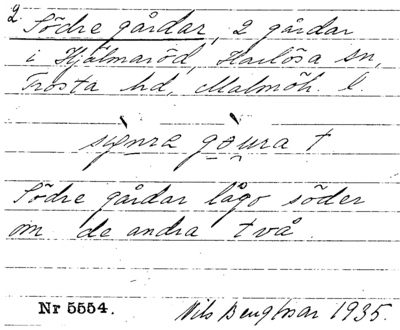 2
Södre gårdar, 2 gårdar
i Hjälmaröd, Harlösa sn,
Frosta hd, Malmöh. l.
Södre gårdar lågo söder
om de andra två.
Nr 5554. Nils Bengtsson 1935.